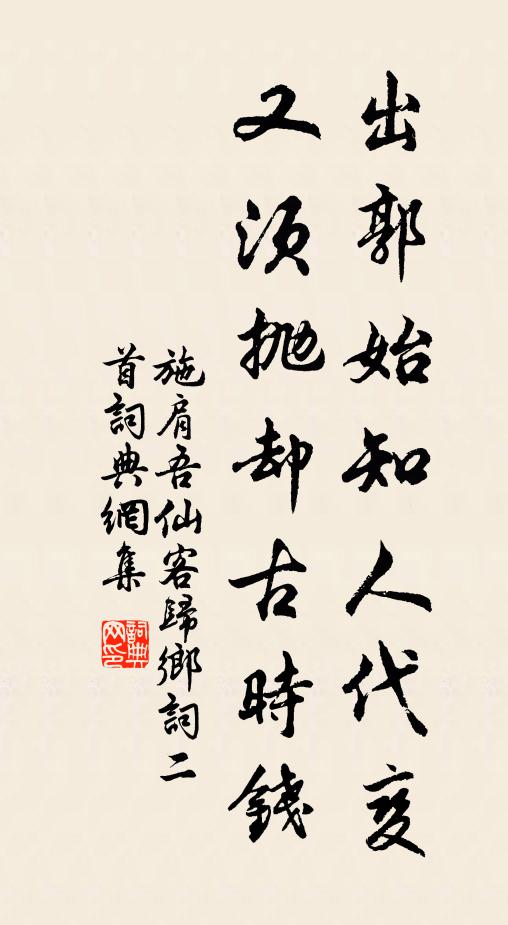 出郭始知人代变
又須抛却古時錢
施肩吾仙客歸鄉詞二
首詞典網集
詞典网印